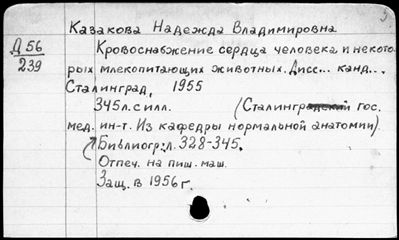 Казакова Надежда Владимировна
Д 56
239
Кровоснабжение сердца человека и некото-
рых млекопитающих животных. Дисс... канд...
Сталинград, 1955
345 л. с илл. (Сталинград гос.
мед. ин-т. Из кафедры нормальной анатомии).
Библиогр: л. 328-345.
Отпеч. на пиш. маш.
Защ. в 1956 г.